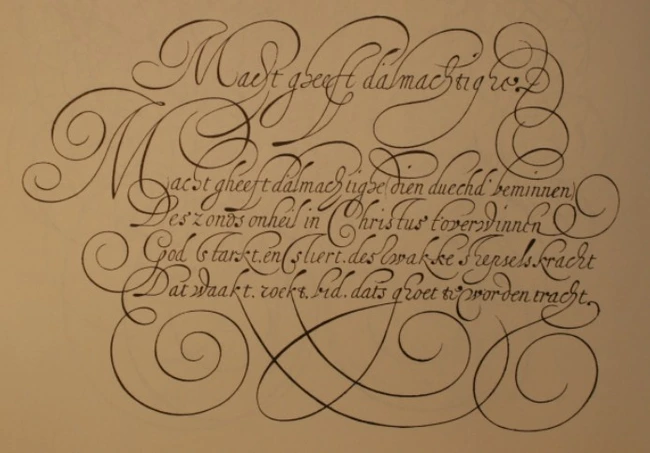 Macht gheeft dalmachtighe.
Macht gheeft dalmachtighe (dien duechd' beminnen)
Des zonds onheil in Christus t'overwinnen
God starkt. en stiert. des swakke shepsels. kracht
Dat waakt. zoekt. bid. dats groet te worden tracht.